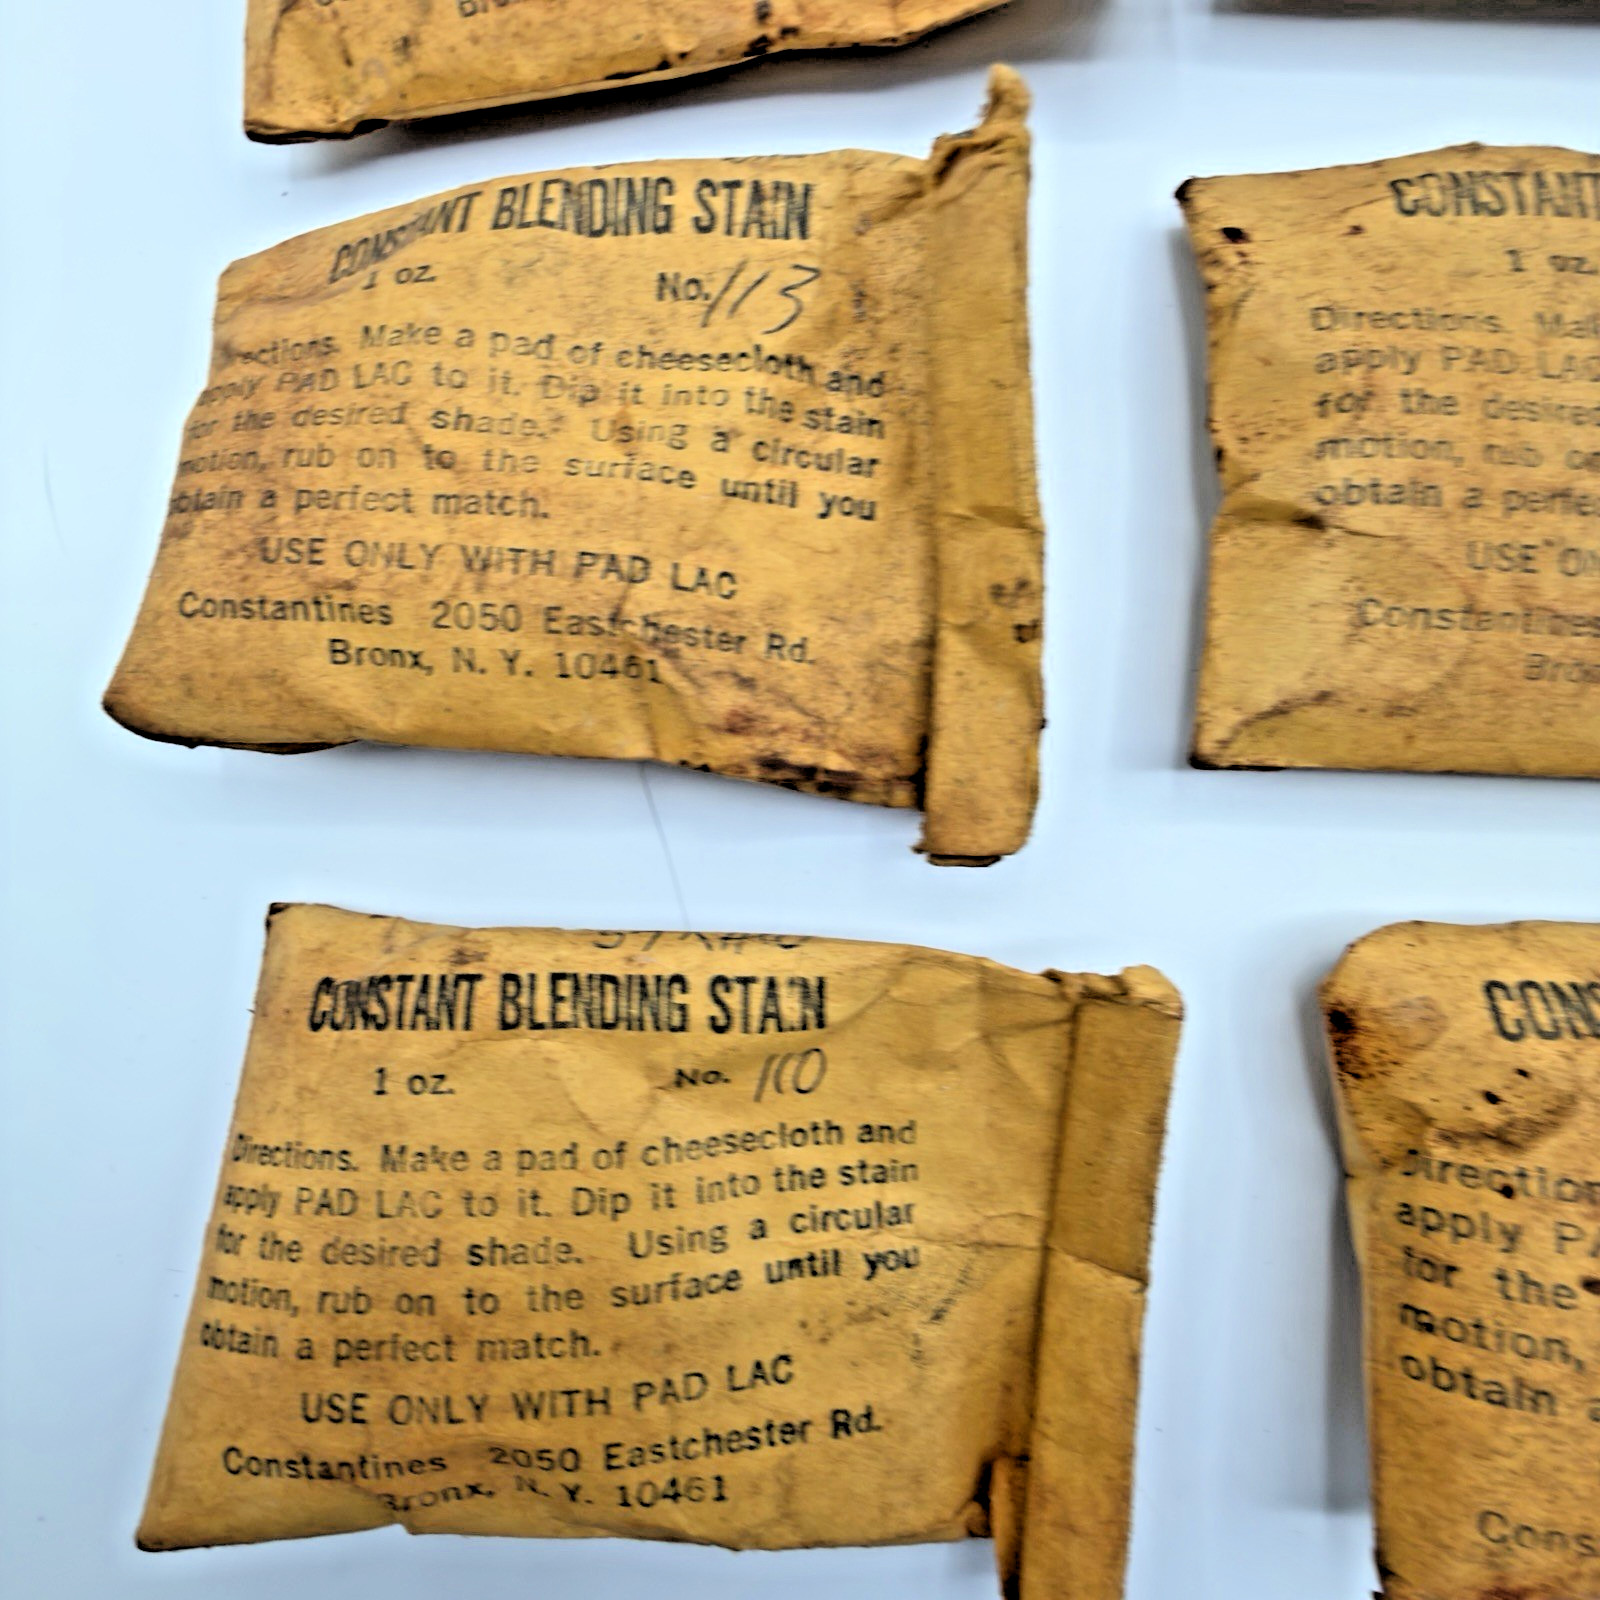 CONSTANT BLENDING STAIN
1 oz. No. 113
Directions. Make a pad of cheesecloth and
apply PAD LAC to it. Dip it into the stain
for the desired shade. Using a circular
motion, rub on to the surface until you
obtain a perfect match.
USE ONLY WITH PAD LAC
Constantines 2050 Eastchester Rd.
Bronx, N. Y. 10461
CONSTANT
1 oz.
Directions.
apply PAD LAC
for the desired
motion, rub
obtain a
USE
Constantines
CONSTANT BLENDING STAIN
1 oz. No. 110
Directions. Make a pad of cheesecloth and
apply PAD LAC to it. Dip it into the stain
for the desired shade. Using a circular
motion, rub on to the surface until you
obtain a perfect match.
USE ONLY WITH PAD LAC
Constantines 2050 Eastchester Rd.
Bronx, N. Y. 10461
apply
for the
motion,
obtain